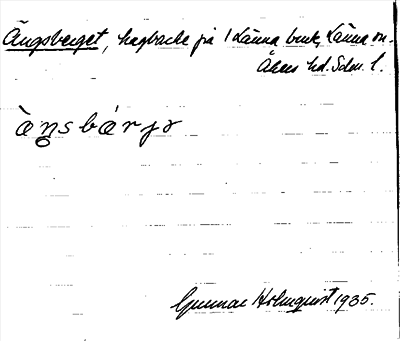 Ängsberget, hagbacke på 1 Länna bruk, Länna sn.
Åkers hd. Sdm. l.
ä̀ŋsbárjə
Gunnar Holmquist 1935.